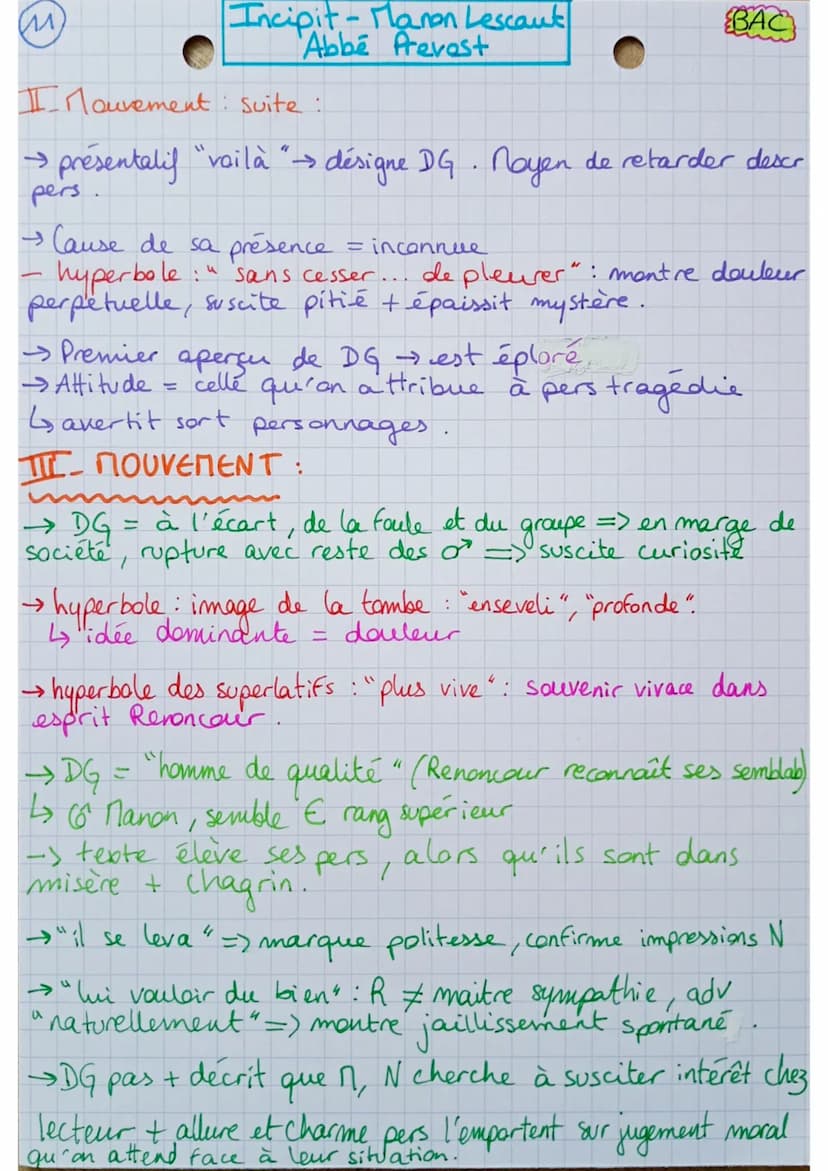 11
Incipit - Manon Lescaut
Abbé Prevost
BAC
II - Mouvement : suite :
→ présentatif "voilà" → désigne DG. Moyen de retarder descr
pers.
→ Cause de sa présence = inconnue
- hyperbole : "sans cesser... de pleurer" : montre douleur
perpétuelle, suscite pitié + épaissit mystère.
→ Premier aperçu de DG → est éploré
→ Attitude = celle qu'on attribue à pers tragédie
↳ avertit sort personnages.
III - MOUVEMENT :
→ DG = à l'écart, de la foule et du groupe => en marge de
société, rupture avec reste des ♂ => suscite curiosité
→ hyperbole : image de la tombe : "enseveli", "profonde".
↳ idée dominante = douleur
→ hyperbole des superlatifs : "plus vive" : souvenir vivace dans
esprit Renoncour.
→ DG = "homme de qualité" (Renoncour reconnaît ses semblab)
↳ Manon, semble € rang supérieur
-> texte élève ses pers, alors qu'ils sont dans
misère + chagrin.
→ "il se leva" => marque politesse, confirme impressions N
→ "lui vouloir du bien" : R ≠ maitre sympathie, adv
"naturellement" => montre jaillissement spontané.
→ DG pas + décrit que M, N cherche à susciter intérêt chez
lecteur + allure et charme pers l'emportent sur jugement moral
qu'on attend face à leur situation.